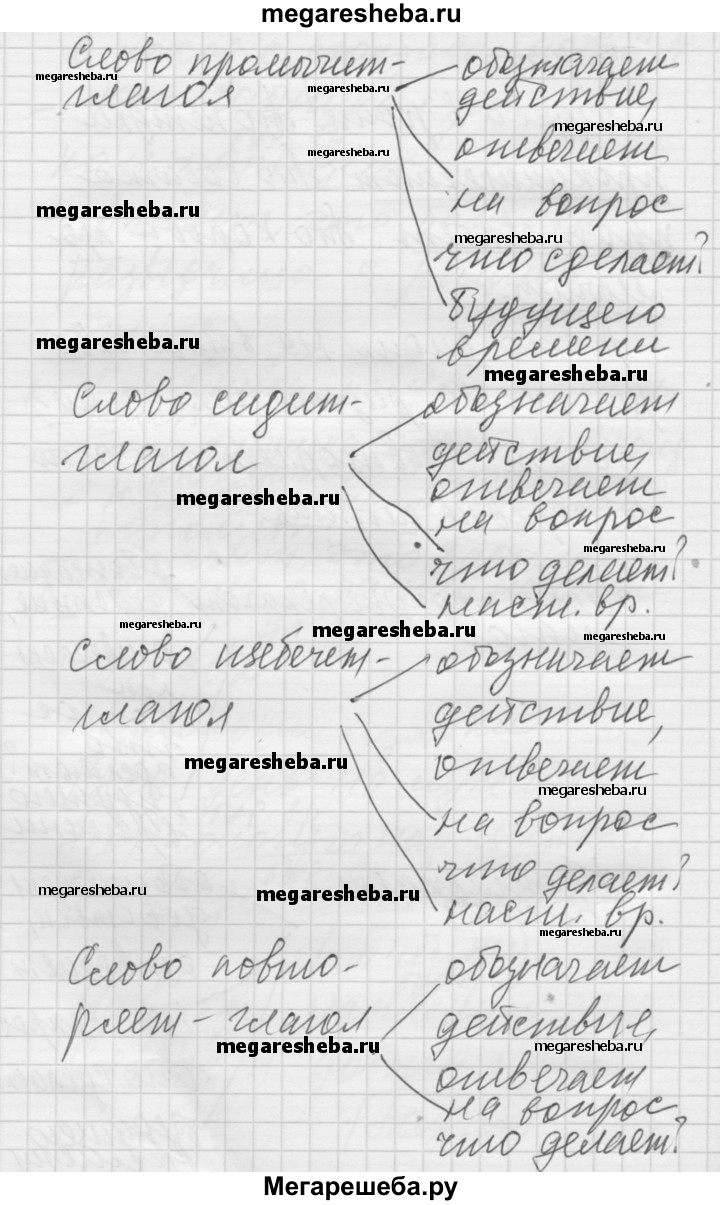 megaresheba.ru
Слово промычит- обозначает
megaresheba.ru
глагол действие,
megaresheba.ru
megaresheba.ru
отвечает
megaresheba.ru
на вопрос
megaresheba.ru
megaresheba.ru
что сделает?
будущего
megaresheba.ru
времени
megaresheba.ru
Слово сидит- обозначает
глагол действие,
отвечает
megaresheba.ru
на вопрос
megaresheba.ru
что делает?
наст. вр.
megaresheba.ru
megaresheba.ru
megaresheba.ru
Слово щебечет- обозначает
глагол действие,
megaresheba.ru
отвечает
megaresheba.ru
на вопрос
что делает?
megaresheba.ru
megaresheba.ru
наст. вр.
megaresheba.ru
Слово повто- обозначает
ряет- глагол действие,
megaresheba.ru
megaresheba.ru
отвечает
на вопрос
что делает?
Мегарешеба.ру